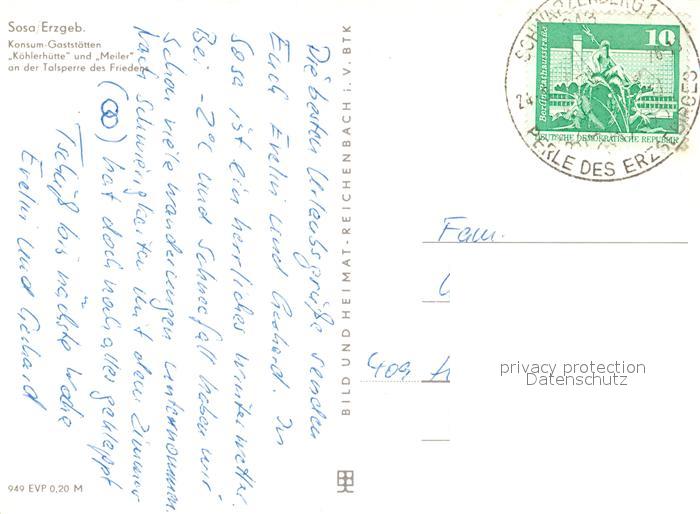 Sosa/Erzgeb.
Konsum-Gaststätten
„Köhlerhütte" und „Meiler"
an der Talsperre des Friedens
Die besten Urlaubsgrüße senden
Euch Evelin und Gerhard. In
Sosa ist ein herrliches Winterwetter.
Bei -2° und Schneefall haben wir
schon viele Wanderungen unternommen.
Nach Schwierigkeiten mit dem Zimmer
hat doch noch alles geklappt
Tschüß bis nächste Woche
Evelin und Gerhard
949 EVP 0,20 M
BILD UND HEIMAT - REICHENBACH i. V. BTK
Berlin, Rathausstraße
10
DEUTSCHE DEMOKRATISCHE REPUBLIK
SCHWARZENBERG 1
PERLE DES ERZGEBIRGES
Fam.
409
privacy protection
Datenschutz